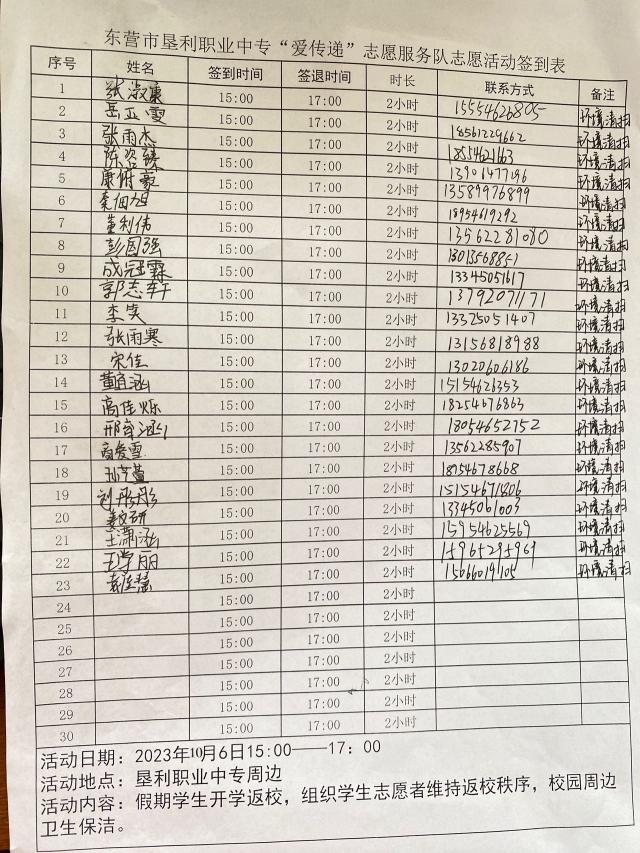 东营市垦利职业中专“爱传递”志愿服务队志愿活动签到表
序号 姓名 签到时间 签退时间 时长 联系方式 备注
1 张淑康 15:00 17:00 2小时 15554626805 环境清扫
2 岳亚雯 15:00 17:00 2小时 18561229662 环境清扫
3 张雨杰 15:00 17:00 2小时 环境清扫
4 15:00 17:00 2小时 环境清扫
5 15:00 17:00 2小时 13589976899 环境清扫
6 秦佃旭 15:00 17:00 2小时 18954619292 环境清扫
7 董利伟 15:00 17:00 2小时 13562281080 环境清扫
8 彭国强 15:00 17:00 2小时 环境清扫
9 成冠霖 15:00 17:00 2小时 13345051617 环境清扫
10 郭志轩 15:00 17:00 2小时 13792071171 环境清扫
11 李笑 15:00 17:00 2小时 13325051407 环境清扫
12 张雨寒 15:00 17:00 2小时 13156818988 环境清扫
13 宋佳 15:00 17:00 2小时 13020606186 环境清扫
14 董宜涵 15:00 17:00 2小时 15154626353 环境清扫
15 高佳烁 15:00 17:00 2小时 18254676863 环境清扫
16 15:00 17:00 2小时 18054652752 环境清扫
17 高爱雪 15:00 17:00 2小时 13562285907 环境清扫
18 15:00 17:00 2小时 18954678668 环境清扫
19 刘彤彤 15:00 17:00 2小时 15154671806 环境清扫
20 15:00 17:00 2小时 13345061003 环境清扫
21 王潇泓 15:00 17:00 2小时 15954625569 环境清扫
22 王学丽 15:00 17:00 2小时 环境清扫
23 15:00 17:00 2小时 15066019105 环境清扫
24 15:00 17:00 2小时
25 15:00 17:00 2小时
26 15:00 17:00 2小时
27 15:00 17:00 2小时
28 15:00 17:00 2小时
29 15:00 17:00 2小时
30 15:00 17:00 2小时
活动日期：2023年10月6日15:00——17：00
活动地点：垦利职业中专周边
活动内容：假期学生开学返校，组织学生志愿者维持返校秩序，校园周边
卫生保洁。